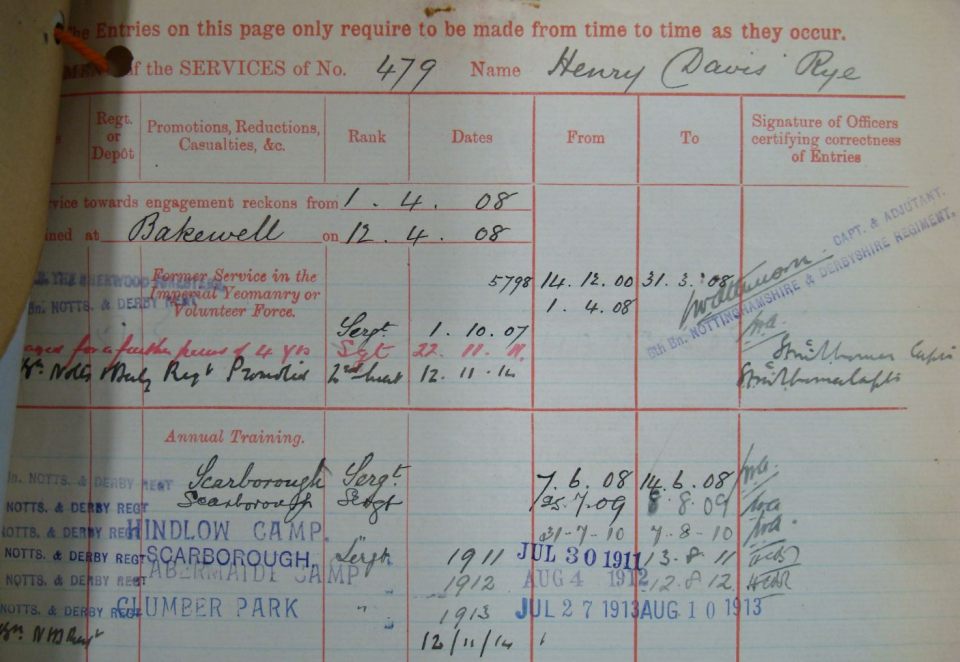 The Entries on this page only require to be made from time to time as they occur.
of the SERVICES of No. 479 Name Henry Davis Rye
Regt. or Depôt Promotions, Reductions, Casualties, &c. Rank Dates From To Signature of Officers certifying correctness of Entries
towards engagement reckons from 1 . 4 . 08
at Bakewell on 12 . 4 . 08
CAPT. & ADJUTANT.
6th Bn. NOTTINGHAMSHIRE & DERBYSHIRE REGIMENT.
THE SHERWOOD FORESTERS Former Service in the 5798 14. 12. 00 31. 3. 08
Bn. NOTTS. & DERBY REGT Imperial Yeomanry or 1 . 4. 08
Volunteer Force.
Sergt. 1 . 10. 07
for a further period of 4 yrs Sgt 22. 11. 11. Capt
Notts & Derby Regt Promoted 2nd Lieut 12. 11. 14 Capt
Annual Training.
Bn. NOTTS. & DERBY REGT Scarborough Sergt. 7. 6. 08 14. 6. 08
NOTTS. & DERBY REGT Scarborough Sergt 25. 7. 09 8. 8. 09
NOTTS. & DERBY REGT HINDLOW CAMP. 31-7-10 7-8-10
NOTTS. & DERBY REGT SCARBOROUGH, Sergt. 1911 JUL 30 1911 13. 8. 11
NOTTS. & DERBY REGT CAMP " 1912 AUG 4 1912 12. 8. 12
NOTTS. & DERBY REGT CLUMBER PARK " 1913 JUL 27 1913 AUG 10 1913
12/11/14